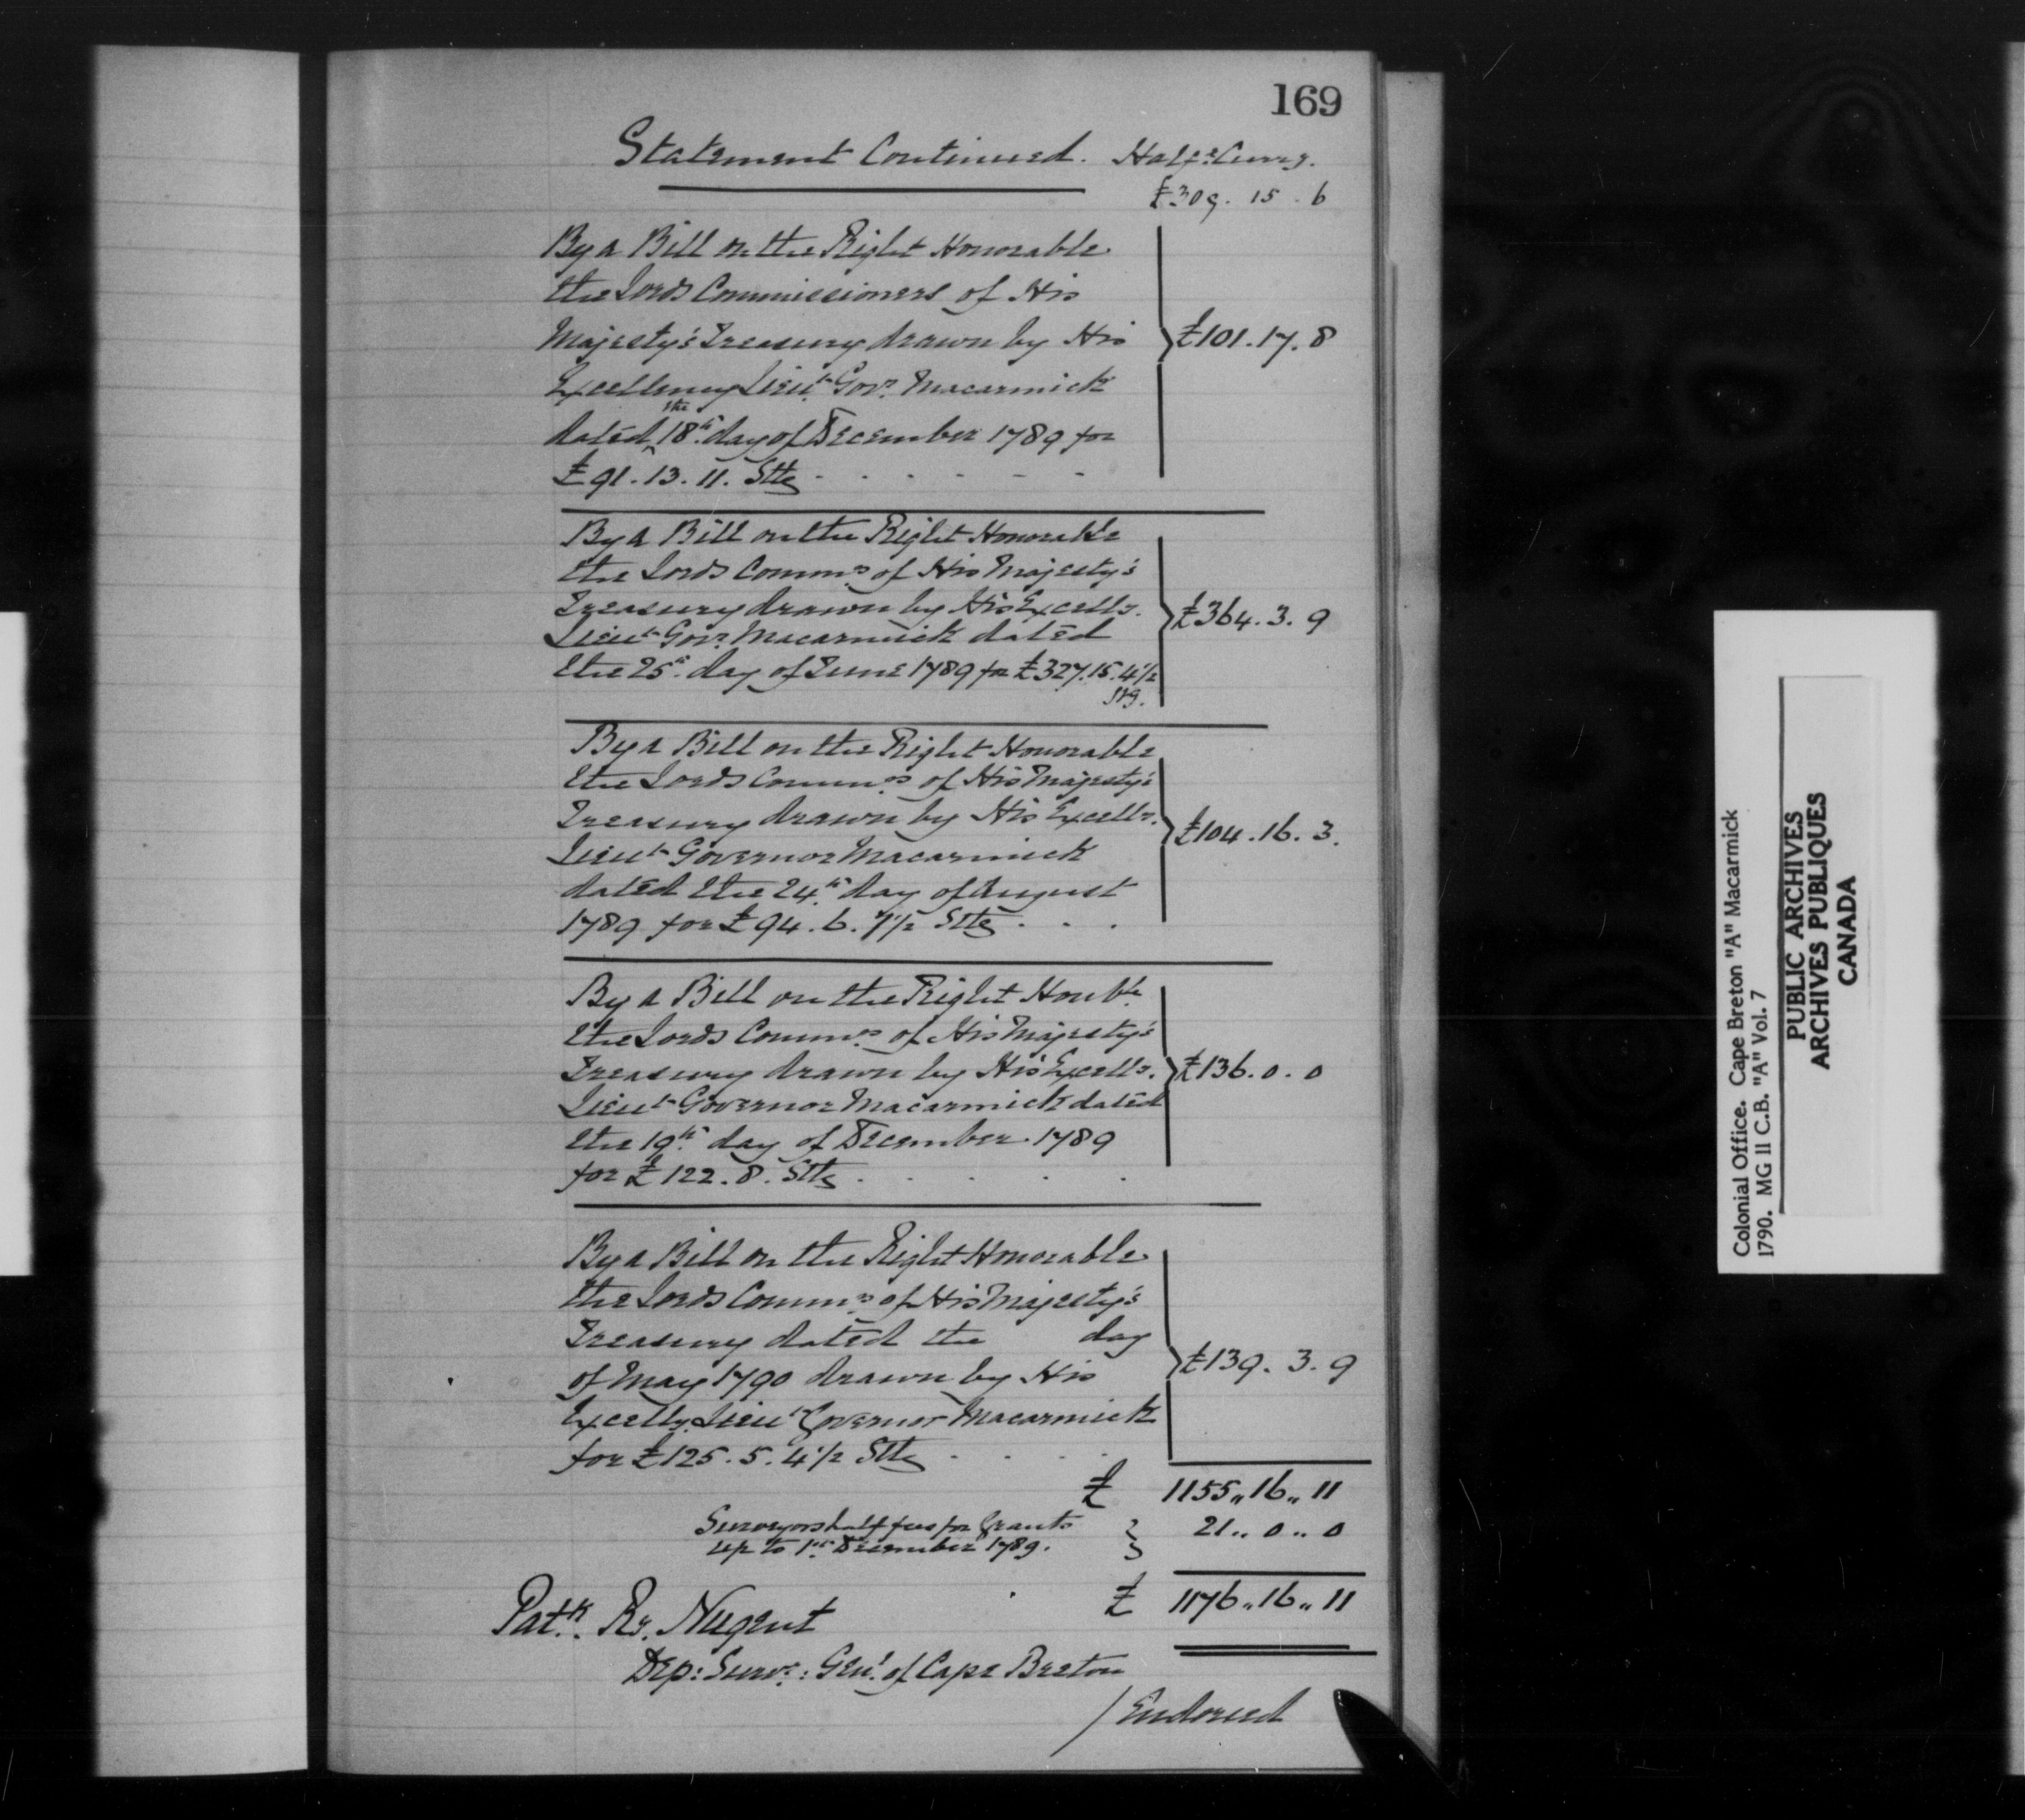 169
Statement Continued. Halfx Curry.
£309. 15. 6
By a Bill on the Right Honorable
the Lords Commissioners of His
Majesty's Treasury drawn by His £101. 17. 8
Excellency Lieut. Govr. Macarmick
dated the 18th day of December 1789 for
£91. 13. 11. Stlg
By a Bill on the Right Honorable
the Lords Comms. of His Majesty's
Treasury drawn by His Excelly. £364. 3. 9
Lieut. Govr. Macarmick dated
the 25th day of June 1789 for £327. 15. 4 1/2
stg.
By a Bill on the Right Honorable
the Lords Comms. of His Majesty's
Treasury drawn by His Excelly. £104. 16. 3.
Lieut. Governor Macarmick
dated the 24th day of August
1789 for £94. 6. 7 1/2 Stlg
By a Bill on the Right Honble.
the Lords Comms. of His Majesty's
Treasury drawn by His Excelly. £136. 0. 0
Lieut. Governor Macarmick dated
the 19th day of December 1789
for £122. 8. Stlg
By a Bill on the Right Honorable
the Lords Comms. of His Majesty's
Treasury dated the day
of May 1790 drawn by His £139. 3. 9
Excelly. Lieut Governor Macarmick
for £125. 5. 4 1/2 Stlg
£ 1155,, 16,, 11
Surveyors half fees for Grants 21,, 0,, 0
up to 1st December 1789.
£ 1176,, 16,, 11
Patk. Rs. Nugent
Dep: Survr: Genl. of Cape Breton
/Endorsed
Colonial Office. Cape Breton "A" Macarmick
1790. MG 11 C.B. "A" Vol. 7
PUBLIC ARCHIVES
ARCHIVES PUBLIQUES
CANADA